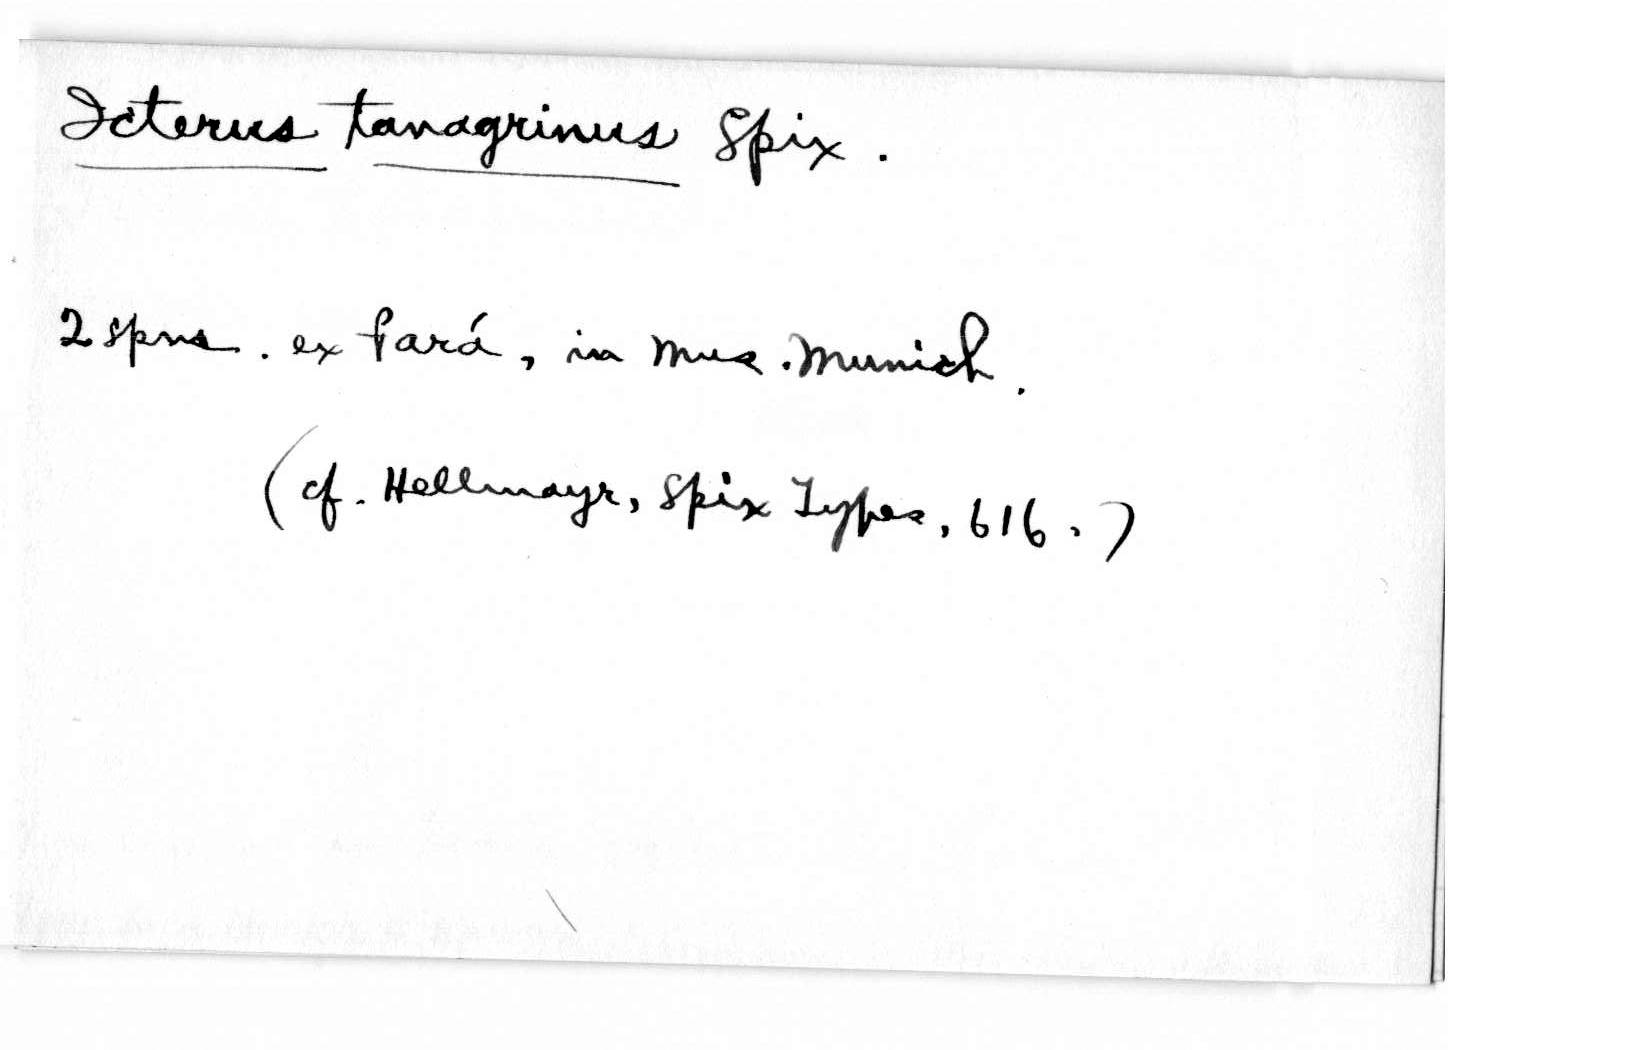 Icterus tanagrinus Spix.
2 spns. ex Pará, in Mus. Munich.
(cf. Hellmayr, Spix Types, 616.)